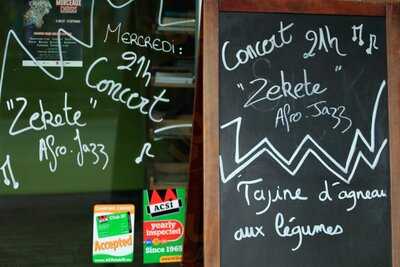 MORCEAUX
CHOISIS
MERCREDI:
21h
Concert
"Zekete"
Afro-Jazz
ACSI
yearly
inspected
Since 1965
Accepted
Concert 21h
"Zekete"
Afro-Jazz
Tajine d'agneau
aux légumes